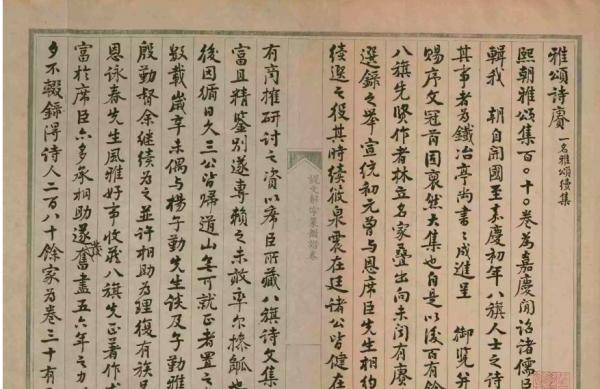 雅頌詩賡 一名雅頌續集
熙朝雅頌集百〇十〇卷爲嘉慶間詔諸儒臣
輯我 朝自開國至嘉慶初年八旗人士之詩
其事者爲鐵冶亭尚書書成進呈 御覽并
賜序文冠首固裒然大集也自是以後百有餘
八旗先賢作者林立名家疊出向未聞有賡
選錄之舉宣統初元曾與恩席臣先生相約
續選之役其時續筱泉震在廷諸公皆健在
有商搉研討之資以席臣所藏八旗詩文集
富且精鑒別遂專賴之未敢率尔操觚也
後因循日久三公皆歸道山無可就正者置之
數載歲辛未偶與楊子勤先生談及子勤雅
殷勤督余繼續爲之並許相助爲理復有族兄
恩詠春先生風雅好事收藏八旗先正著作尤
富於席臣亦多承相助遂奮盡五六年之力
夕不輟錄得詩人二百八十餘家爲卷三十有
說文解字纂類譜卷